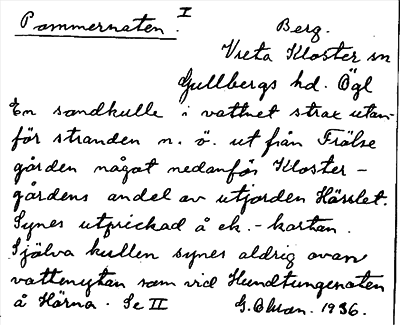 Pommernaten. I
Berg.
Vreta Kloster sn
Gullbergs hd. Ögl
En sandkulle i vattnet strax utan-
för stranden n. ö. ut från Frälse
gården något nedanför Kloster-
gårdens andel av utjorden Hässlet.
Synes utprickad å ek.-kartan.
Själva kullen synes aldrig ovan
vattenytan som vid Hundtungenaten
å Härna. Se II
G. 1936.